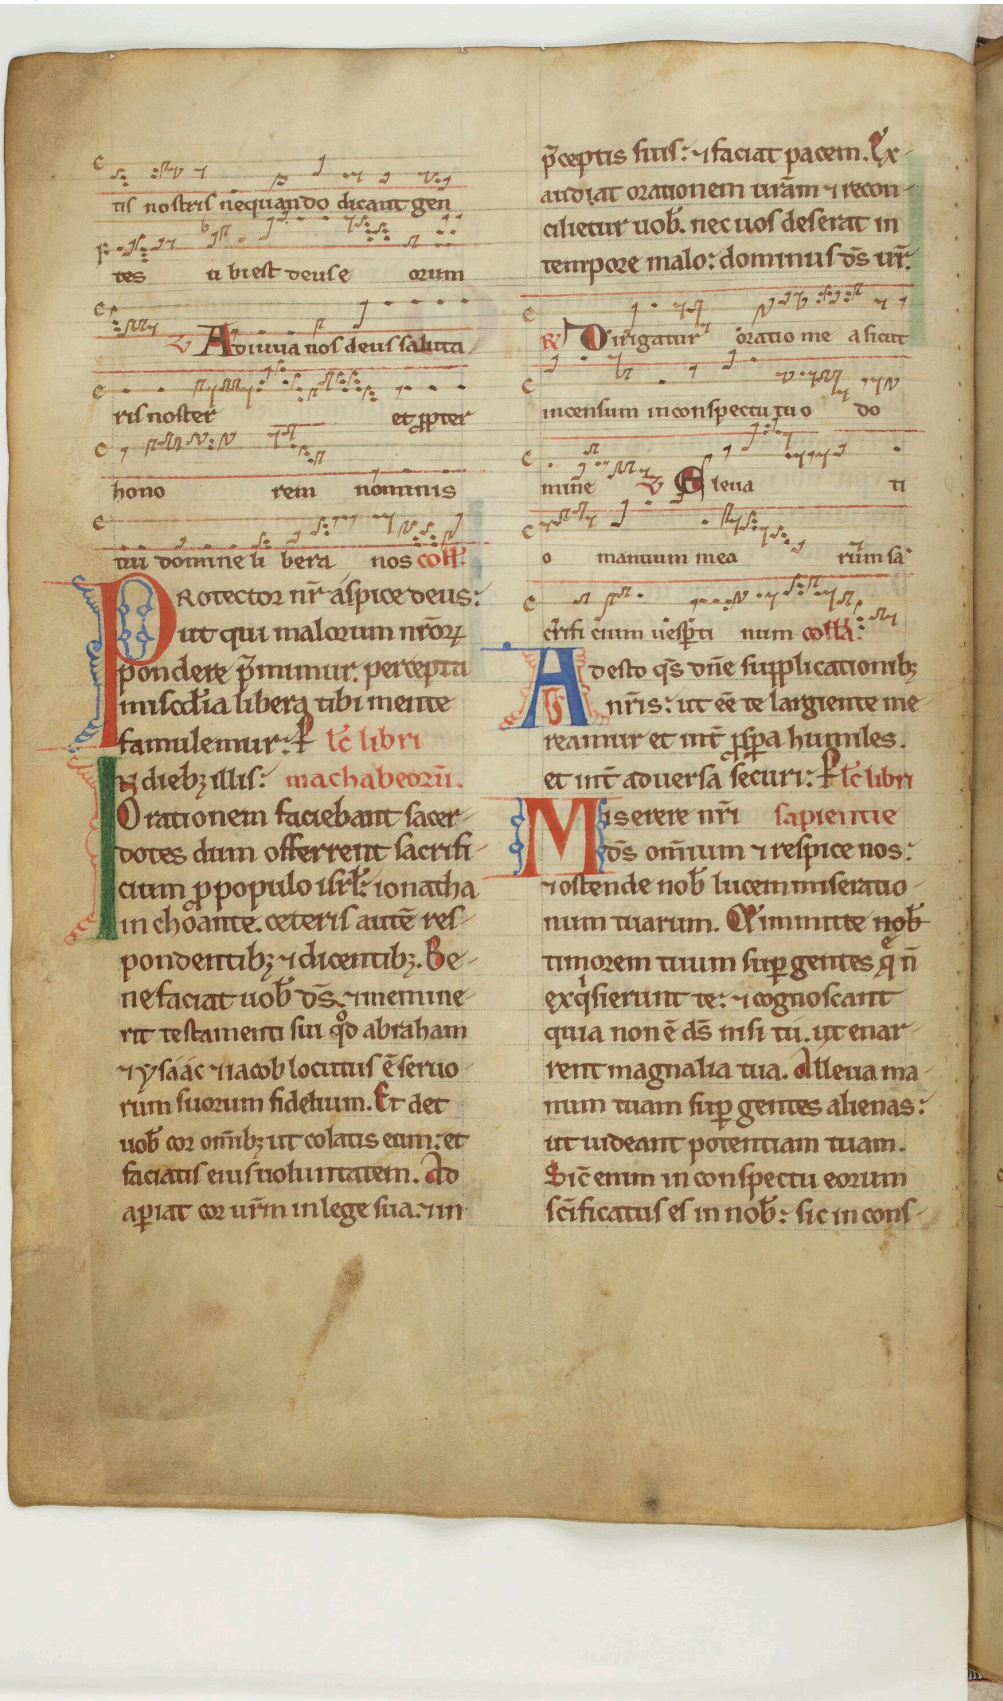 tis nostris nequando dicant gen
tes u bi est deus e orum
℣ Adiuua nos deus saluta
ris noster et ꝓpter
hono rem nominis
tui domine li bera nos coll̄.
PRotector nr̄ aspice deus:
ut qui malorum nr̄orꝝ
pondere p̄mimur. percepta
mis̄cdīa libera tibi mente
famulemur: P̱ lc̄ libri
IN diebꝫ illis: machabeorū.
Orationem faciebant sacer-
dotes dum offerrent sacrifi-
cium ꝓ populo isrl̄: ionatha
inchoante. ceteris autē res-
pondentibꝫ ⁊ dicentibꝫ. Be-
nefaciat uob̄ ds̄. ⁊ memine-
rit testamenti sui qͦd abraham
⁊ ysaac ⁊ iacob locutus ē seruo-
rum suorum fidelium. Et det
uob̄ cor omībꝫ ut colatis eum: et
faciatis eius uoluntatem. Ad
aꝑiat cor ur̄m in lege sua: ⁊ in
p̄ceptis suis: ⁊ faciat pacem. Ex-
audiat orationem ur̄am ⁊ recon-
cilietur uob̄. nec uos deserat in
tempore malo: dominus ds̄ ur̄.
℟ Dirigatur oratio me a sicut
incensum in conspectu tu o do
mine ℣ Eleua ti
o manuum mea rum sa
crifi cium uesꝑti num coll̄a.
Adesto qs̄ dn̄e supplicationibꝫ
nr̄is: ut eē te largiente me-
reamur et int̄ ꝓsꝑa humiles.
et int̄ aduersa securi: P̱ lc̄ libri
Miserere nr̄i sapientie
ds̄ om̄ium ⁊ respice nos:
⁊ ostende nob̄ lucem miseratio-
num tuarum. Et immitte nob̄
timorem tuum suꝑ gentes. q̄ n̄
exqͥsierunt te: ⁊ cognoscant
quia non ē ds̄ nisi tu. ut enar-
rent magnalia tua. Alleua ma-
num tuam suꝑ gentes alienas:
ut uideant potentiam tuam.
Sic̄ enim in conspectu eorum
sc̄ificatus es in nob̄: sic in cons-